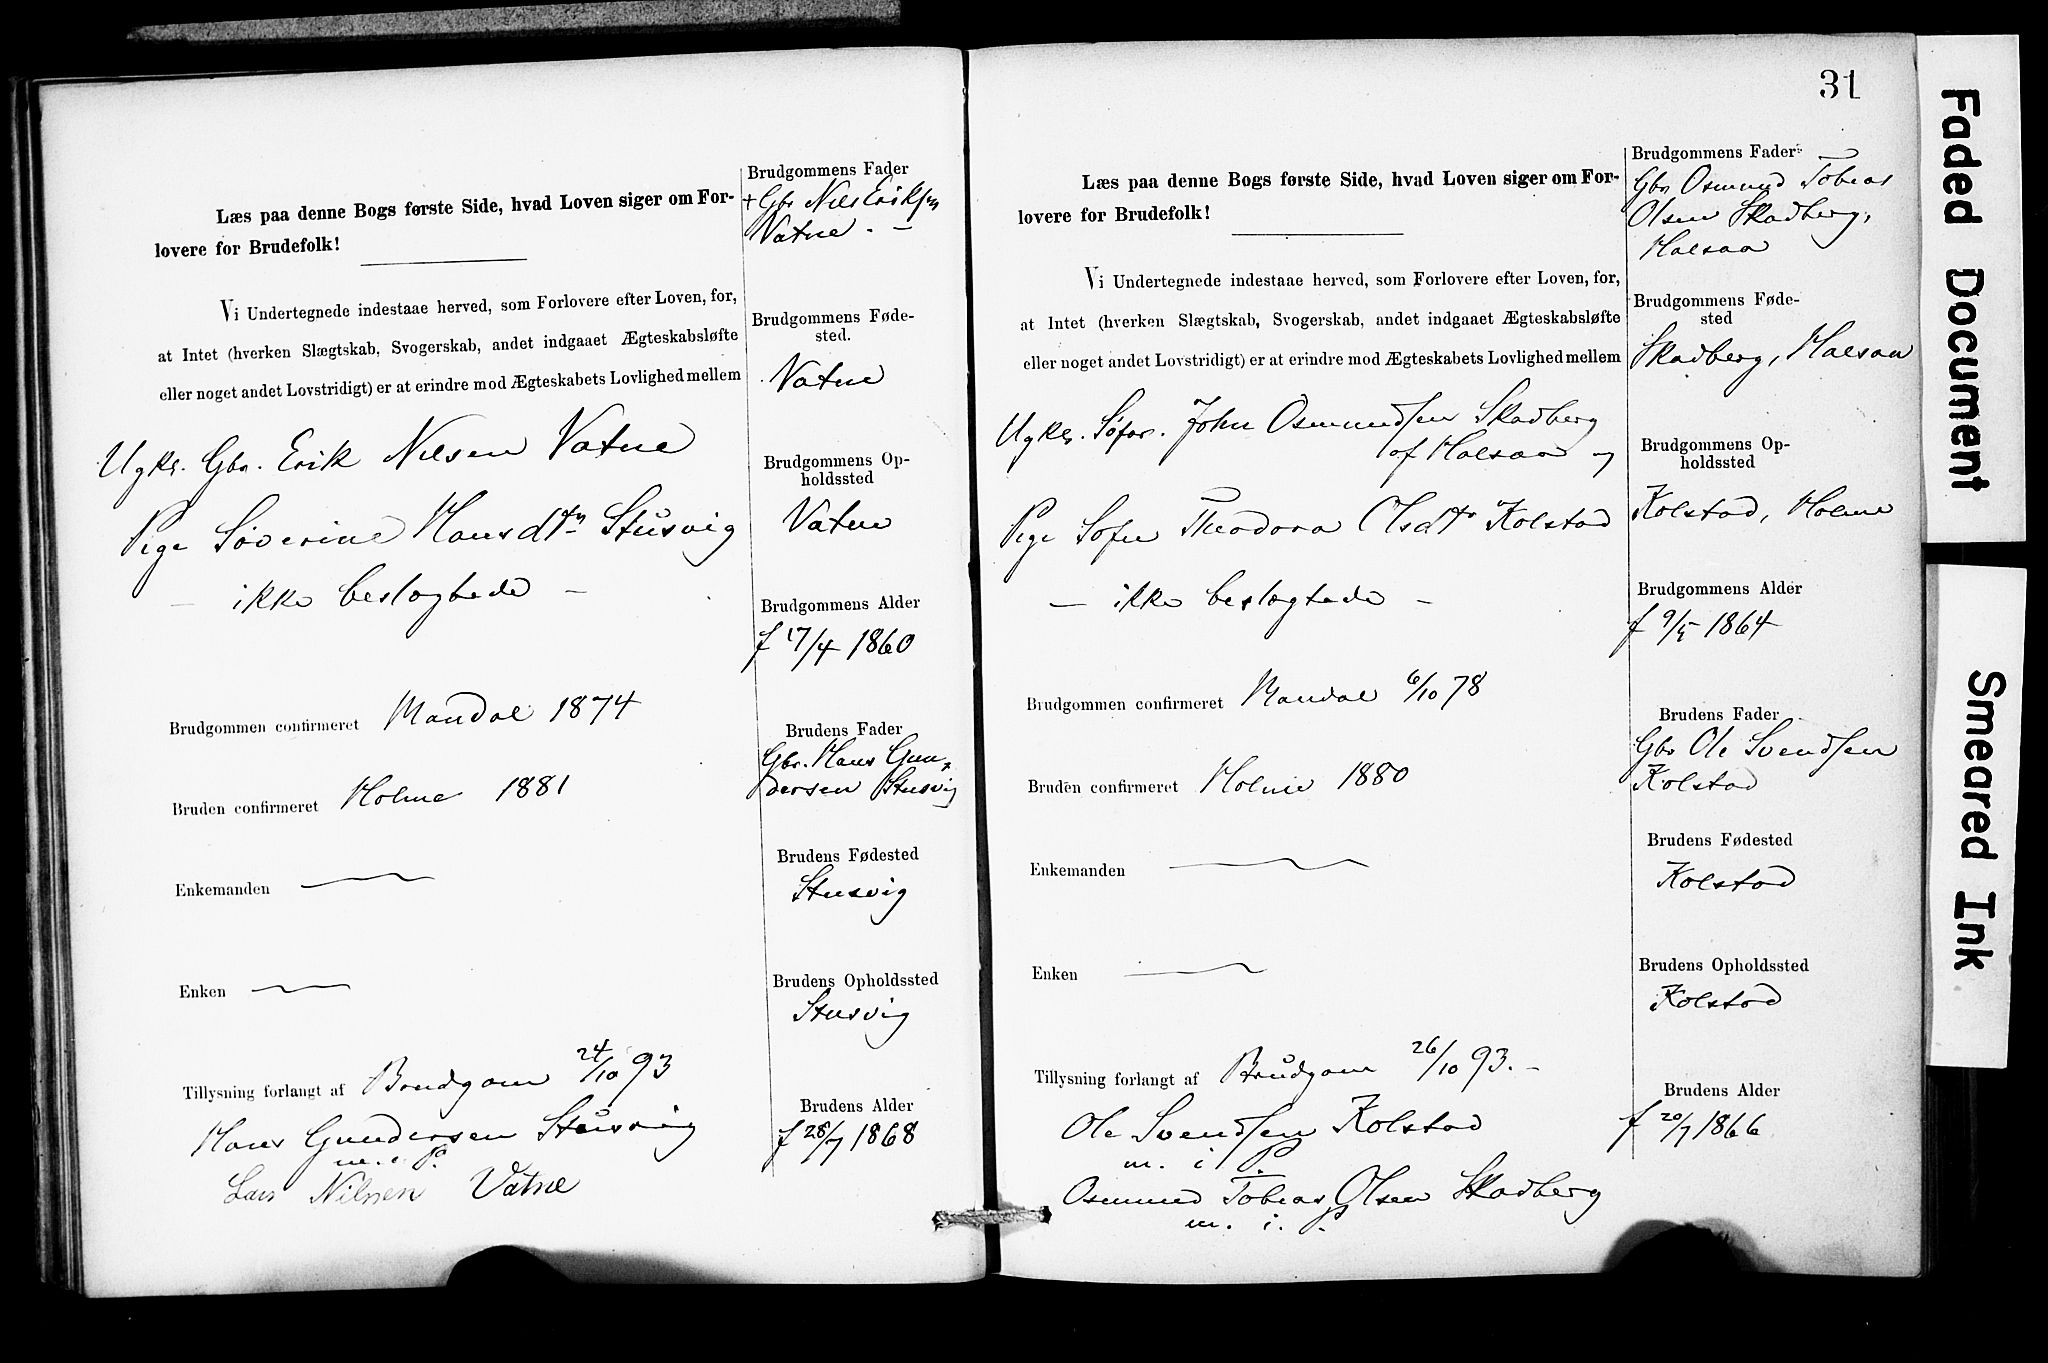 Læs paa denne Bogs første Side, hvad Loven siger om For-
lovere for Brudefolk!
Vi Undertegnede indestaae herved, som Forlovere efter Loven, for,
at Intet (hverken Slægtskab, Svogerskab, andet indgaaet Ægteskabsløfte
eller noget andet Lovstridigt) er at erindre mod Ægteskabets Lovlighed mellem
Ugkr. Gbr. Erik Nilsen Vatne
Pige Søverine Hansdtr Stusvig
– ikke beslægtede –
Brudgommen confirmeret Mandal 1874
Bruden confirmeret Holme 1881
Enkemanden
Enken
Tillysning forlangt af Brudgom 24/10 93
Hans Gundersen Stusvig
m. i P.
Lars Nilsen Vatne
Brudgommens Fader
+ Gbr Nils Eriksen
Vatne. –
Brudgommens Føde-
sted.
Vatne
Brudgommens Op-
holdssted
Vatne
Brudgommens Alder
f 17/4 1860
Brudens Fader
Gbr. Hans Gun-
dersen Stusvig
Brudens Fødested
Stusvig
Brudens Opholdssted
Stusvig
Brudens Alder
f 28/7 1868
31
Læs paa denne Bogs første Side, hvad Loven siger om For-
lovere for Brudefolk!
Vi Undertegnede indestaae herved, som Forlovere efter Loven, for,
at Intet (hverken Slægtskab, Svogerskab, andet indgaaet Ægteskabsløfte
eller noget andet Lovstridigt) er at erindre mod Ægteskabets Lovlighed mellem
Ugkr. Søfar. John Osmundsen Skadberg
af Halsaa og
Pige Sofie Theodora Olsdtr Kolstad
– ikke beslægtede –
Brudgommen confirmeret Mandal 6/10 78
Bruden confirmeret Holme 1880
Enkemanden
Enken
Tillysning forlangt af Brudgom 26/10 93. –
Ole Svendsen Kolstad
m. i P.
Osmund Tobias Olsen Skadberg
m. i. P.
Brudgommens Fader
Gbr Osmund Tobias
Olsen Skadberg,
Halsaa
Brudgommens Føde-
sted
Skadberg, Halsaa
Brudgommens Op-
holdssted
Kolstad, Holme
Brudgommens Alder
f 9/5 1864
Brudens Fader
Gbr Ole Svendsen
Kolstad
Brudens Fødested
Kolstad
Brudens Opholdssted
Kolstad
Brudens Alder
f 20/7 1866
Faded Document
Smeared Ink